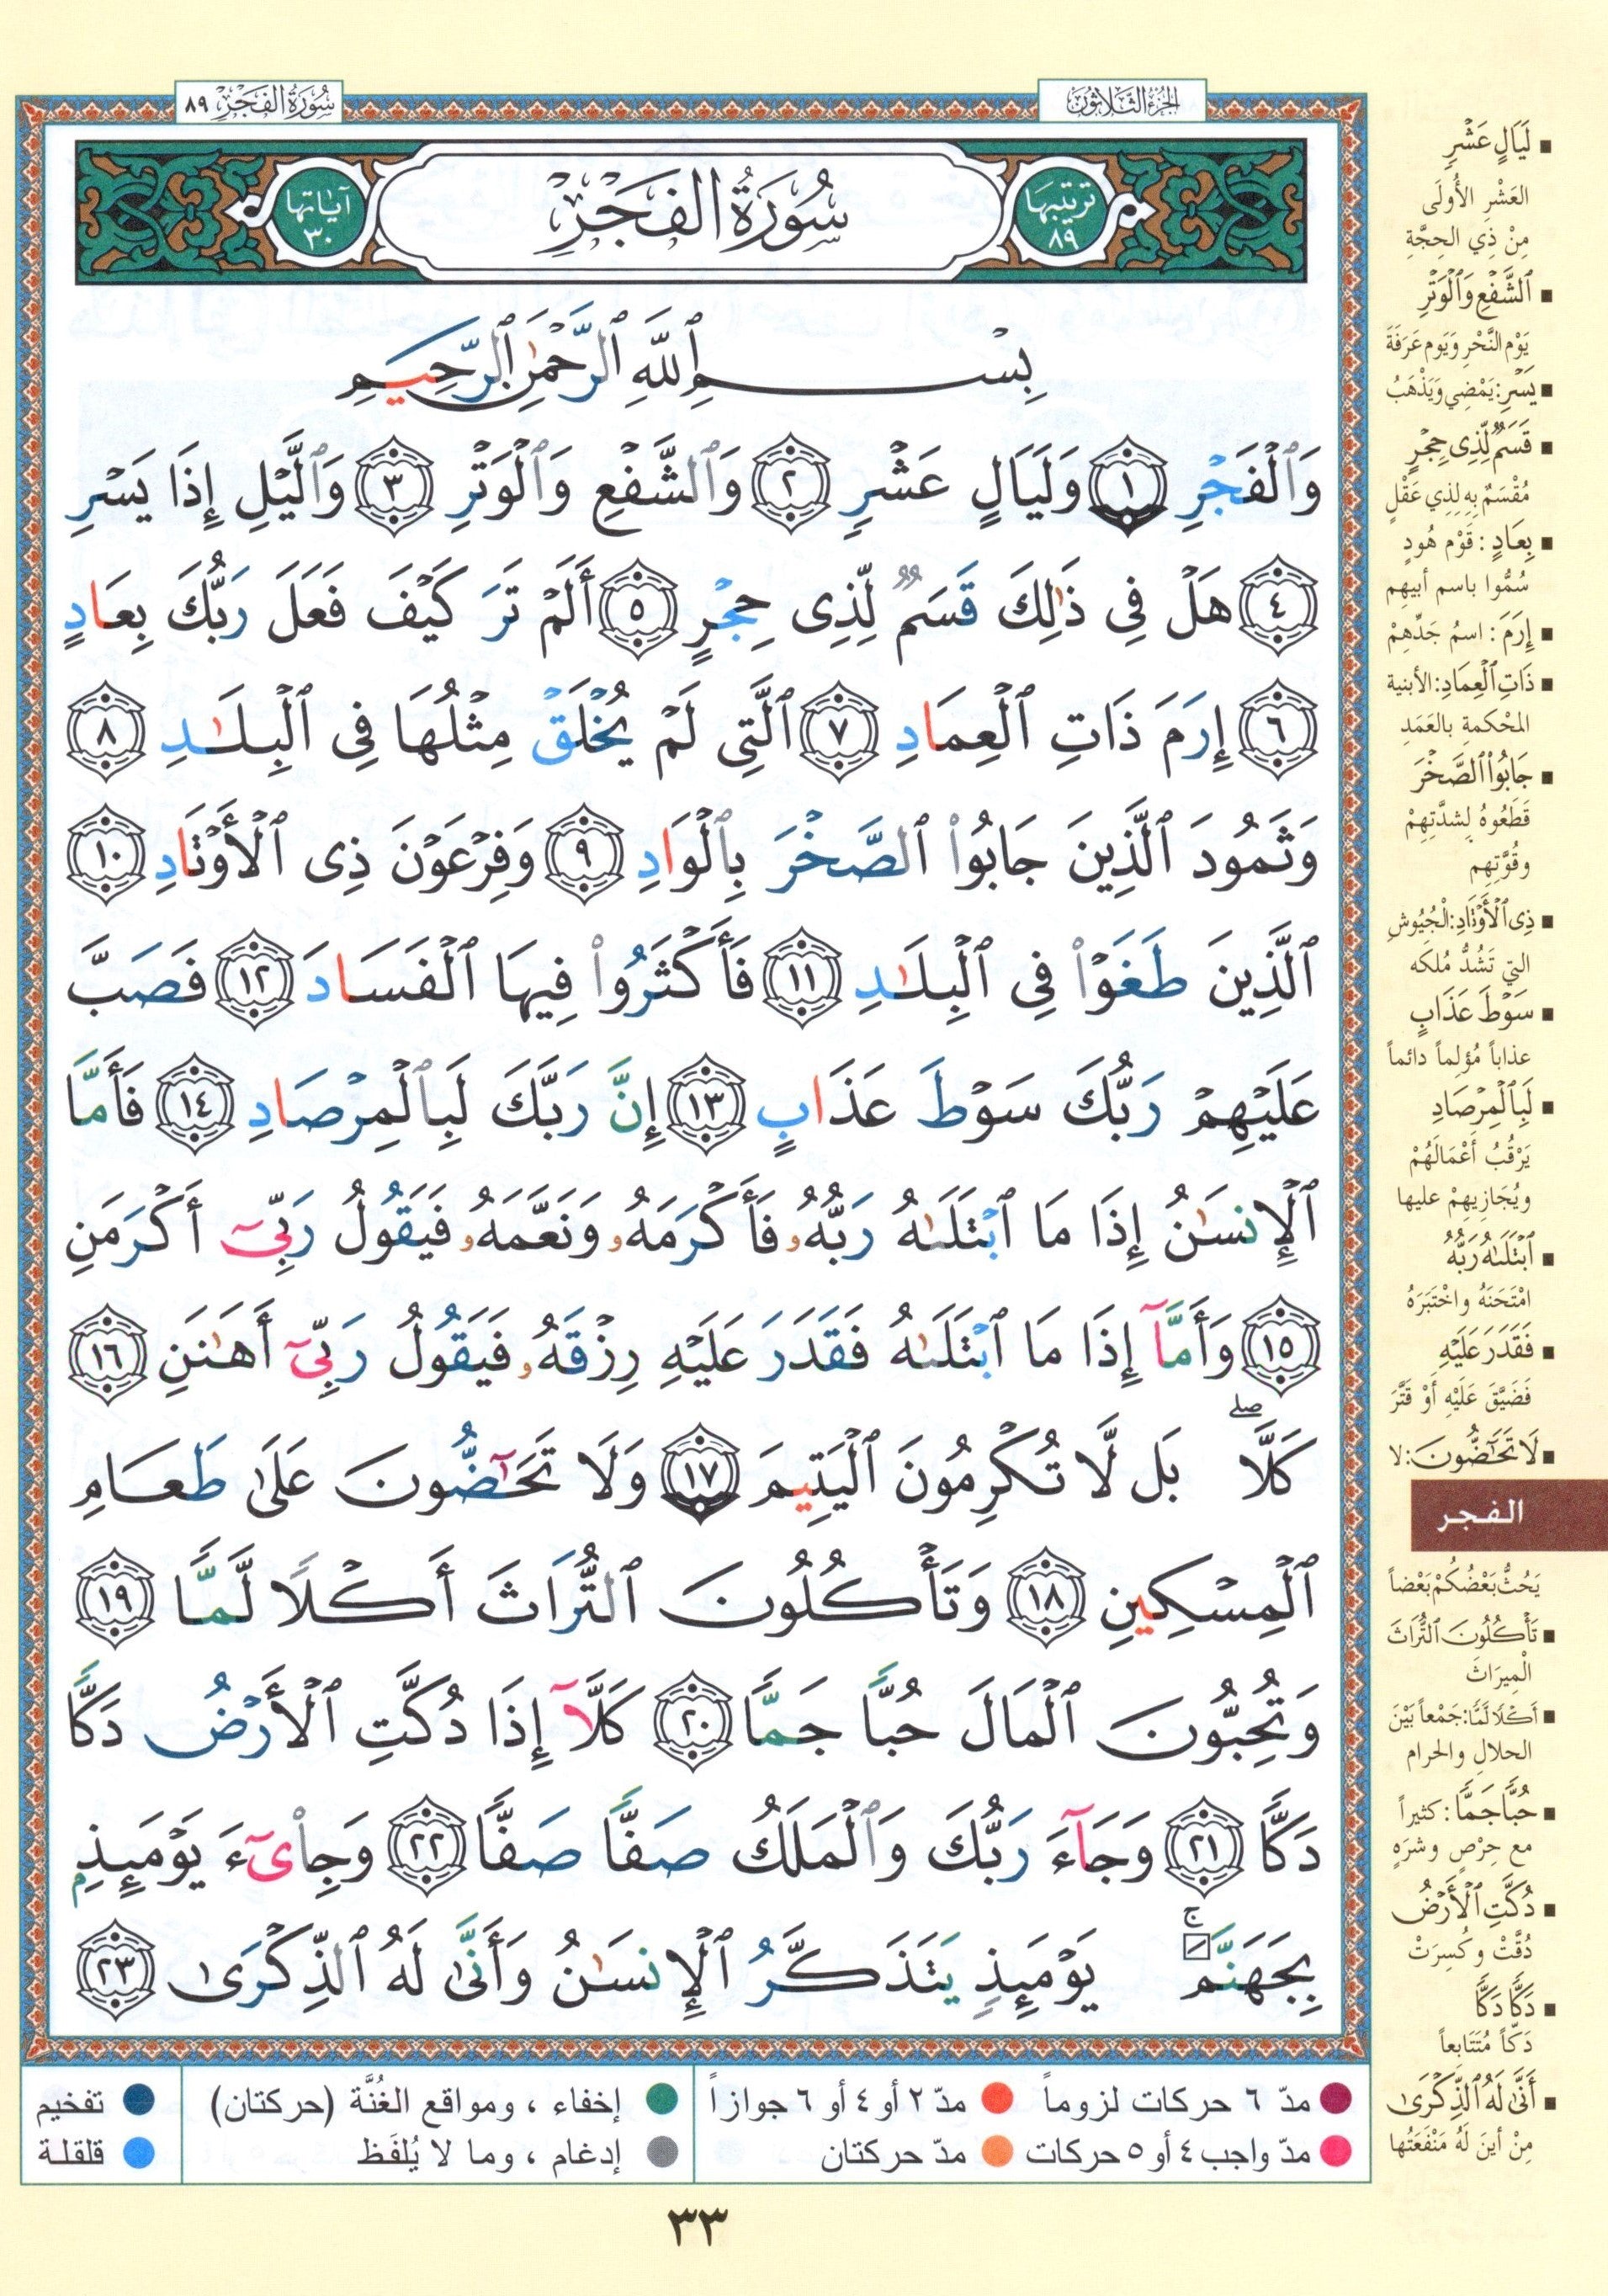 الجزء الثلاثون
سُورَةُ الفَجْرِ ٨٩
ترتيبها ٨٩
سُورَةُ الفَجْرِ
آياتها ٣٠
بِسْمِ ٱللَّهِ ٱلرَّحْمَٰنِ ٱلرَّحِيمِ
وَٱلْفَجْرِ ١ وَلَيَالٍ عَشْرٍ ٢ وَٱلشَّفْعِ وَٱلْوَتْرِ ٣ وَٱلَّيْلِ إِذَا يَسْرِ
٤ هَلْ فِى ذَٰلِكَ قَسَمٌ لِّذِى حِجْرٍ ٥ أَلَمْ تَرَ كَيْفَ فَعَلَ رَبُّكَ بِعَادٍ
٦ إِرَمَ ذَاتِ ٱلْعِمَادِ ٧ ٱلَّتِى لَمْ يُخْلَقْ مِثْلُهَا فِى ٱلْبِلَٰدِ ٨
وَثَمُودَ ٱلَّذِينَ جَابُوا۟ ٱلصَّخْرَ بِٱلْوَادِ ٩ وَفِرْعَوْنَ ذِى ٱلْأَوْتَادِ ١٠
ٱلَّذِينَ طَغَوْا۟ فِى ٱلْبِلَٰدِ ١١ فَأَكْثَرُوا۟ فِيهَا ٱلْفَسَادَ ١٢ فَصَبَّ
عَلَيْهِمْ رَبُّكَ سَوْطَ عَذَابٍ ١٣ إِنَّ رَبَّكَ لَبِٱلْمِرْصَادِ ١٤ فَأَمَّا
ٱلْإِنسَٰنُ إِذَا مَا ٱبْتَلَىٰهُ رَبُّهُۥ فَأَكْرَمَهُۥ وَنَعَّمَهُۥ فَيَقُولُ رَبِّىٓ أَكْرَمَنِ
١٥ وَأَمَّآ إِذَا مَا ٱبْتَلَىٰهُ فَقَدَرَ عَلَيْهِ رِزْقَهُۥ فَيَقُولُ رَبِّىٓ أَهَٰنَنِ ١٦
كَلَّا ۖ بَل لَّا تُكْرِمُونَ ٱلْيَتِيمَ ١٧ وَلَا تَحَٰٓضُّونَ عَلَىٰ طَعَامِ
ٱلْمِسْكِينِ ١٨ وَتَأْكُلُونَ ٱلتُّرَاثَ أَكْلًا لَّمًّا ١٩
وَتُحِبُّونَ ٱلْمَالَ حُبًّا جَمًّا ٢٠ كَلَّآ إِذَا دُكَّتِ ٱلْأَرْضُ دَكًّا
دَكًّا ٢١ وَجَآءَ رَبُّكَ وَٱلْمَلَكُ صَفًّا صَفًّا ٢٢ وَجِا۟ىٓءَ يَوْمَئِذٍۭ
بِجَهَنَّمَ ۚ يَوْمَئِذٍ يَتَذَكَّرُ ٱلْإِنسَٰنُ وَأَنَّىٰ لَهُ ٱلذِّكْرَىٰ ٢٣
▪ لَيَالٍ عَشْرٍ
العَشْرِ الأُولَى
مِنْ ذِي الحِجَّةِ
▪ ٱلشَّفْعِ وَٱلْوَتْرِ
يَوْمِ النَّحْرِ وَيَومِ عَرَفَةَ
▪ يَسْرِ: يَمْضِي وَيَذْهَبُ
▪ قَسَمٌ لِّذِى حِجْرٍ
مُقْسَمٌ بِهِ لِذِي عَقْلٍ
▪ بِعَادٍ : قَوْم هُودٍ
سُمُّوا باسم أبيهِم
▪ إِرَمَ : اسمُ جَدِّهِمْ
▪ ذَاتِ ٱلْعِمَادِ: الأبنية
المحْكمةِ بالعَمَدِ
▪ جَابُوا۟ ٱلصَّخْرَ
قَطَعُوهُ لِشدَّتِهِمْ
وقُوَّتِهِم
▪ ذِى ٱلْأَوْتَادِ: الْجُيُوشِ
التي تَشُدُّ مُلكَه
▪ سَوْطَ عَذَابٍ
عذاباً مُؤلِماً دائماً
▪ لَبِٱلْمِرْصَادِ
يَرْقُبُ أَعْمَالَهُمْ
ويُجَازِيهِمْ عليها
▪ ٱبْتَلَىٰهُ رَبُّهُ
امْتَحَنَهُ واخْتَبَرَهُ
▪ فَقَدَرَ عَلَيْهِ
فَضَيَّقَ عَلَيْهِ أَوْ قَتَّرَ
▪ لَا تَحَٰٓضُّونَ: لا
الفجر
يَحُثُّ بَعْضُكُمْ بَعْضاً
▪ تَأْكُلُونَ ٱلتُّرَاثَ
الْمِيرَاثَ
▪ أَكْلًا لَّمًّا: جَمْعاً بَيْنَ
الحلالِ والحرام
▪ حُبًّا جَمًّا : كثيراً
مع حِرْصٍ وشرَهٍ
▪ دُكَّتِ ٱلْأَرْضُ
دُقَّتْ وكُسِرَتْ
▪ دَكًّا دَكًّا
دَكّاً مُتَتَابِعاً
▪ أَنَّىٰ لَهُ ٱلذِّكْرَىٰ
مِنْ أينَ لَهُ مَنْفَعَتُها
مدّ ٦ حركات لزوماً ● مدّ ٢ أو ٤ أو ٦ جوازاً
مدّ واجب ٤ أو ٥ حركات ● مدّ حركتان
إخفاء ، ومواقع الغُنَّة (حركتان)
إدغام ، وما لا يُلفَظ
تفخيم
قلقلة
٣٣